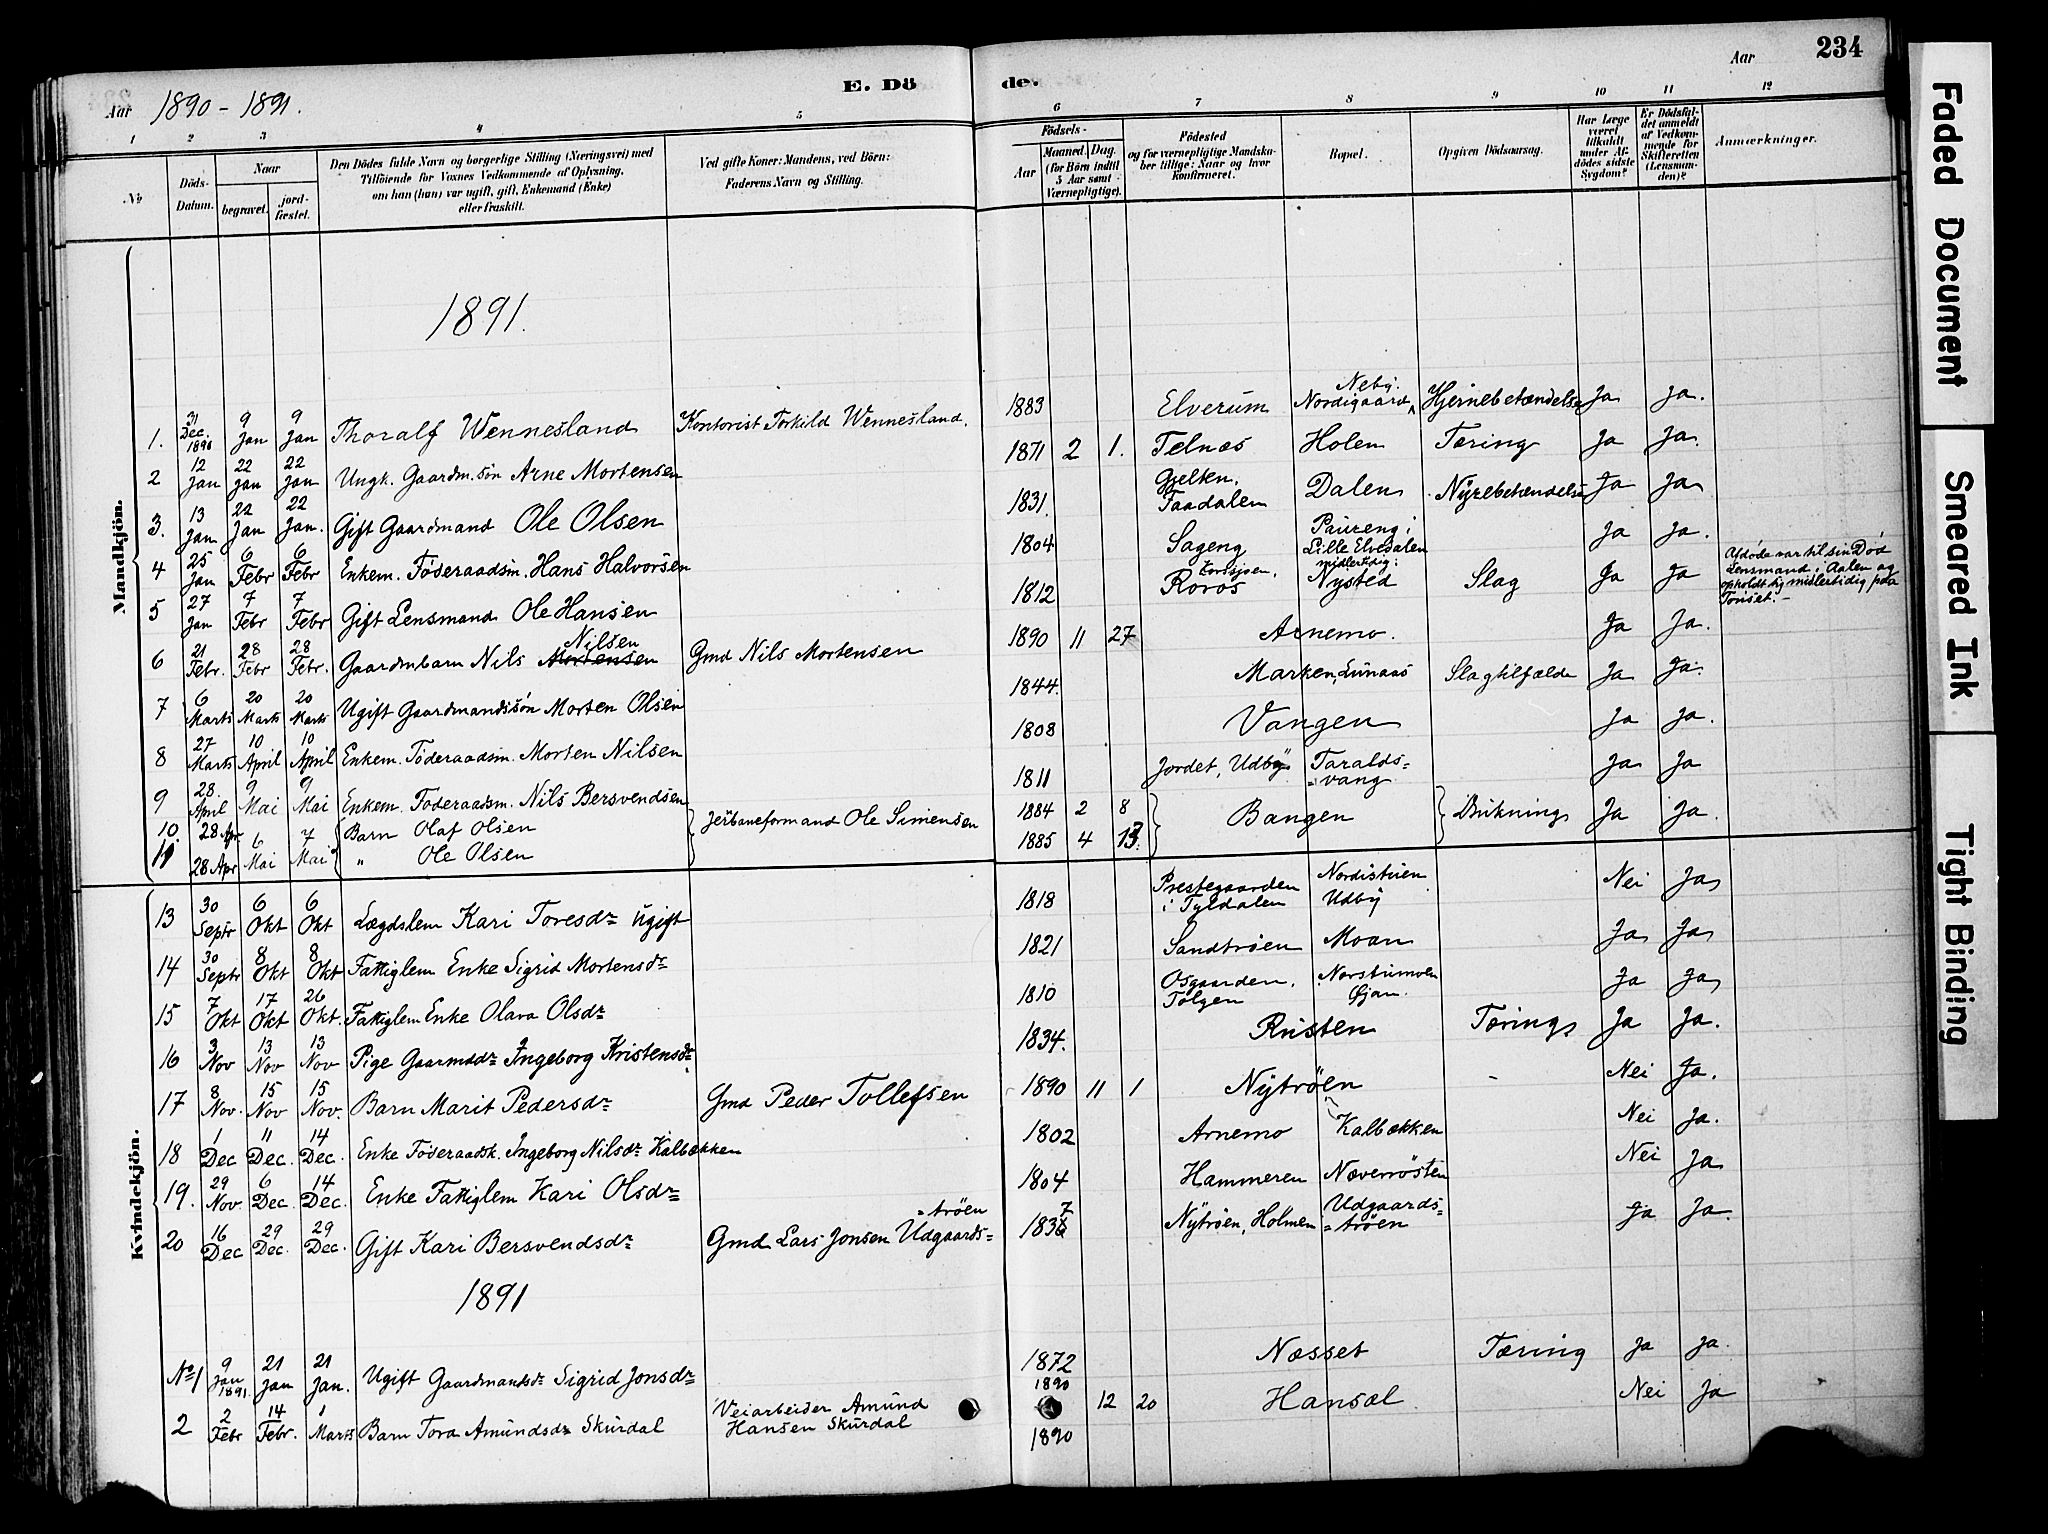 234
Aar 1890 - 1891.
E. Dö de.
Aar
1 2 3 4 5 6 7 8 9 10 11 12
No
Döds-Datum.
Naar
begravet.
jord-fæstet.
Den Dödes fulde Navn og borgerlige Stilling (Næringsvei) med
Tilföiende for Voxnes Vedkommende af Oplysning,
om han (hun) var ugift, gift, Enkemand (Enke)
eller fraskilt.
Ved gifte Koner: Mandens, ved Börn:
Faderens Navn og Stilling.
Födsels-
Aar
Maaned. Dag.
(for Börn indtil
5 Aar samt
Værnepligtige).
Födested
og for værnepligtige Mandska-
ber tillige: Naar og hvor
Konfirmeret.
Bopæl.
Opgiven Dödsaarsag.
Har Læge
været
tilkaldt
under Af-
dödes sidste
Sygdom?
Er Dödsfal-
det anmeldt
af Vedkom-
mende for
Skifteretten
(Lensman-
den)?
Anmærkninger.
Mandkjön.
1891.
1. 31 Dec. 1890 9 Jan 9 Jan Thoralf Wennesland Kontorist Torkild Wennesland. 1883 Elverum Neby. Nordigaard Hjernebetændelse Ja Ja.
2 12 Jan 22 Jan 22 Jan Ungk. Gaardm.sön Arne Mortensen 1871 2 1. Telnæs Holen Tæring Ja Ja.
3. 13 Jan 22 Jan 22 Jan. Gift Gaardmand Ole Olsen 1831. Gjelten. Faadalen Dalen Nyrebetændelse Ja Ja
4 25 Jan 6 Febr 6 Febr Enkem. Föderaadsm. Hans Halvorsen 1804 Sageng Paureng i Lille Elvedalen Ja Ja.
5 27 Jan 7 Febr 7 Febr Gift Lensmand Ole Hansen 1812 Röros midlertidig: Nysted Slag Ja Ja Afdöde var til sin Död
Lensmand i Aalen og
opholdt sig midlertidig paa
Tönset.-
6 21 Febr. 28 Febr 28 Febr. Gaardmbarn Nils Mortensen Nilsen Gmd Nils Mortensen 1890 11 27 Arnemo. Ja Ja.
7 6 Marts 20 Marts 20 Marts Ugift Gaardmandssön Morten Olsen 1844. Marken, Lunaas Slagtilfælde Ja Ja.
8 27 Marts 10 April 10 April Enkem. Föderaadsm. Morten Nilsen 1808 Vangen Ja Ja.
9 28. April 9 Mai 9 Mai Enkem. Föderaadsm. Nils Bersvendsen 1811 Jordet, Udby Taralds=
=vang Ja Ja
10 28 Apr 6 Mai 7 Mai Barn Olaf Olsen Jerbaneformand Ole Simensen 1884 2 8 Bangen Drukning Ja Ja.
11 28 Apr " Ole Olsen 1885 4 13.
Kvindekjön.
13 30 Septr 6 Okt 6 Okt Lægdslem Kari Toresdr ugift 1818 Prestegaarden
i Tyldalen Nordistuen
Udby Nei Ja
14 30 Septr 8 Okt 8 Okt Fattiglem Enke Sigrid Mortensdr 1821 Sandtröen Moan Ja Ja
15 7 Okt 17 Okt 26 Okt. Fattiglem Enke Olava Olsdr 1810 Osgaarden.
Tolgen Norstumoen
Øian. Ja Ja
16 3 Nov 13 Nov 13 Nov Pige Gaarmsdr Ingeborg Kristensdr. 1834. Rusten Tæring Ja Ja.
17 8 Nov. 15 Nov 15 Nov. Barn Marit Pedersdr Gmd Peder Tollefsen 1890 11 1 Nytröen - Nei Ja.
18 1 Dec 11 Dec. 14 Dec. Enke Föderaadsk. Ingeborg Nilsdr Kalbækken 1802 Arnemo Kalbækken Nei Ja.
19. 29 Nov. 6 Dec. 14 Dec. Enke Fattiglem Kari Olsdr 1804 Hammeren Næverrösten Nei Ja
20 16 Dec 29 Dec. 29 Dec. Gift Kari Bersvendsdr Gmd Lars Jonsen Udgaards=
=tröen 1837 Nytröen, Holmen Udgaards=
=tröen Ja Ja.
1891
No 1 9 Jan 1891. 21 Jan 21 Jan. Ugift Gaardmandsdr Sigrid Jonsdr 1872 Næsset Tæring Ja Ja.
2 2 Febr 14 Febr. 1 Marts Barn Tora Amundsdr Skurdal Veiarbeider Amund
Hansen Skurdal 1890 12 20 Hansæl. Nei Ja
1890
Faded Document
Smeared Ink
Tight Binding